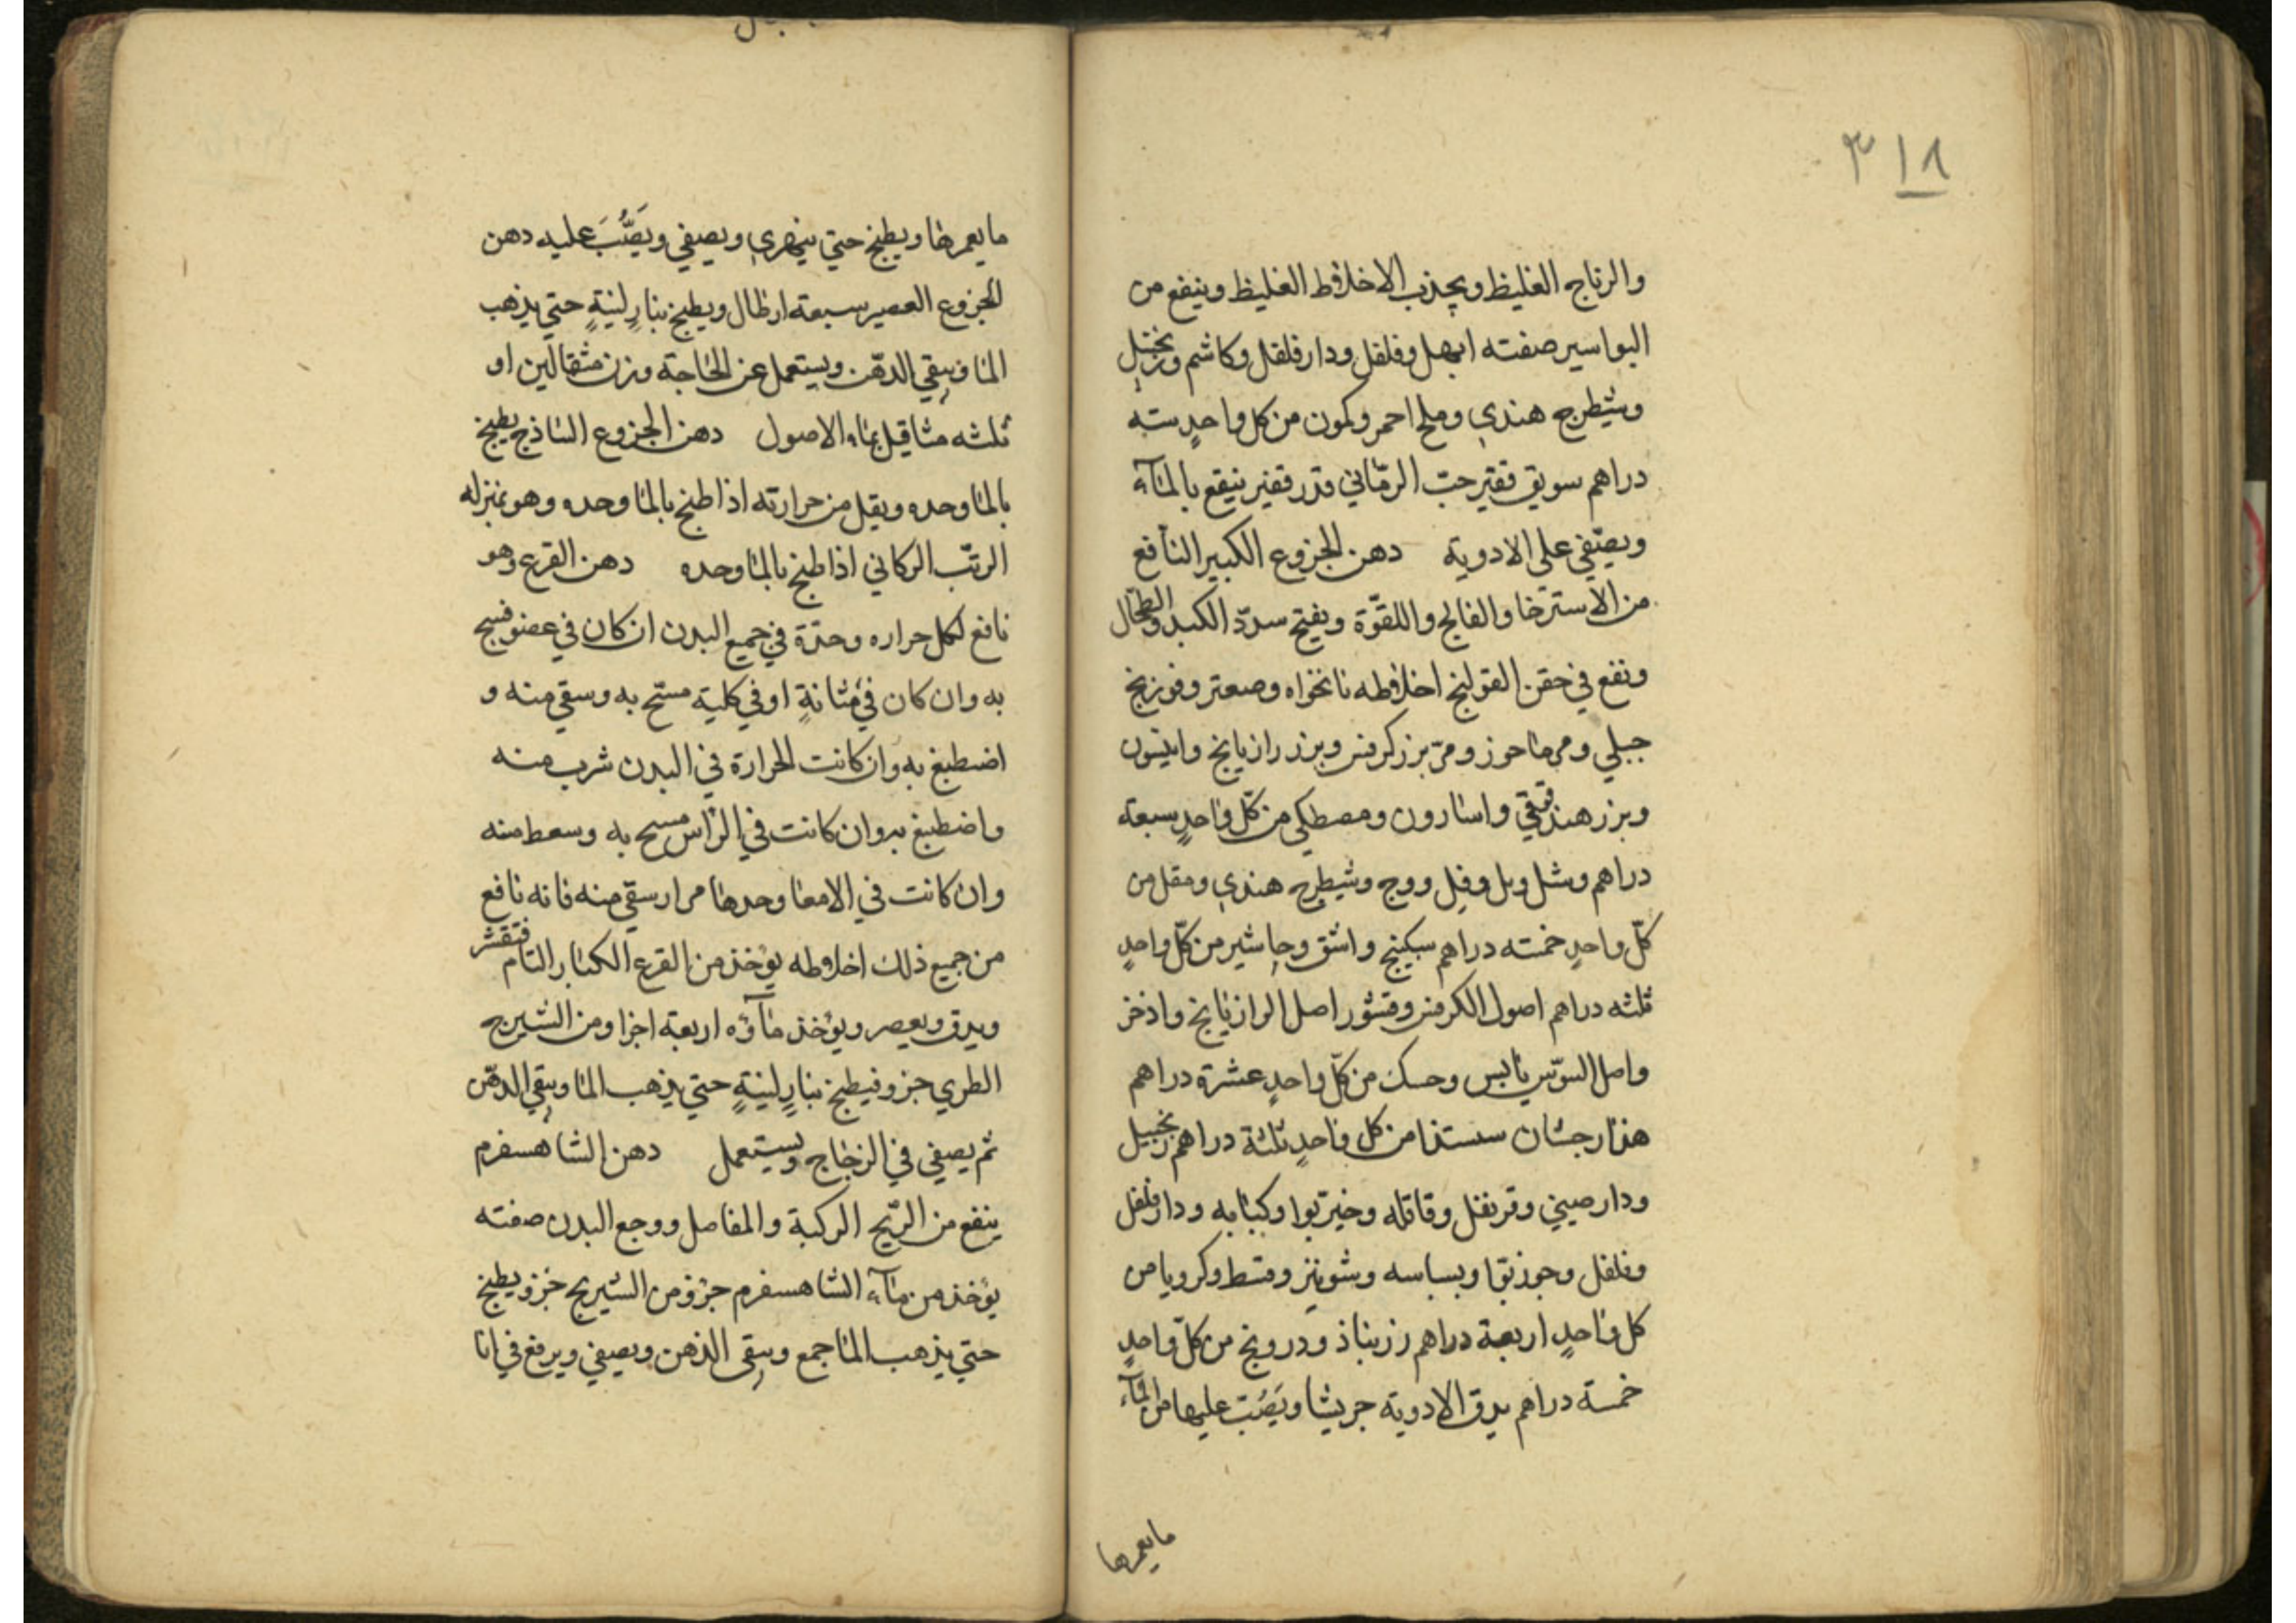 ٣١٨
والرناج الغليظ ويجذب الاخلاط الغليظ وينفع من
البواسير صفته ابهل وفلفل ودارفلفل وكاشم وزنجبل
وشيطرج هندي وملح احمر وكمون من كل واحدٍ سته
دراهم سويق قفيز حبّ الرمّاني قدر قفيز ينقع بالمآء
ويصّفي على الادوية دهن الجزوع الكبير النافع
من الاسترخا والفالج واللقوّة ويفتح سددّ الكبد والطحال
ونفع في حقن القولنج اخلاطه نانخواه وصعتر وفوزنج
جبلي ومرماحوز ومرّ بزر كرفس وبزر رازيانج وانيسون
وبزر هندقوقي واسارون ومصطكي من كلّ واحدٍ سبعة
دراهم وشل وبل وفل ووج وشيطرج هندي ومقل من
كلّ واحدٍ خمسته دراهم سكبنج واشق وجاشير من كلّ واحدٍ
ثلثه دراهم اصول الكرفس وقشور اصل الرازيانج واذخر
واصل السوّس يابس وحسك من كلّ واحدٍ عشرة دراهم
هذارجشان سستذا من كل واحدٍ ثلثة دراهم زنجبيل
ودارصيني وقرنفل وقاقله وخيربوا وكبابه ودارفلفل
وفلفل وجوزبوّا وبسباسه وشونيز وقسط وكرويا من
كل واحدٍ اربعة دراهم زرنباذ ودرونج من كلّ واحدٍ
خمسة دراهم يدق الادوية جريشا ويَصُبّ عليها من المآء
مايعمرها
مايعمرها ويطبخ حتي ينهري ويصفي ويَصُّبَ عليه دهن
الجزوع العصير سبعة ارطال ويطبخ بنارٍ لينةٍ حتي يذهب
الما ويبقي الدهّن ويستعمل عن الحاجة وزن مثقالين او
ثلثه مثاقيل بماء الاصول دهن الجزوع الساذج يطبخ
بالما وحده ويقل من حرارته اذا طبخ بالما وحده وهو بمنزله
الرتّب الركاني اذا طبخ بالما وحده دهن القرع وهو
نافع لكل حراره وحدّة في جميع البدن ان كان في عضو فسح
به وان كان في مثانةٍ او في كليةٍ مسّح به وسقي منه و
اضطبغ به وان كانت الحرارة في البدن شرب منه
واضطبغ به وان كانت في الراس مسح به وسعط منه
وان كانت في الامعا وحدها مرار سقي منه فانه نافع
من جميع ذلك اخلاطه يؤخذ من القرع الكبار التام فتقشر
ويدق ويعصر ويؤخذ مآؤه اربعة اجزا ومن الشيرج
الطري جزو فيطبخ بنارٍ لينةٍ حتي يذهب الما ويبقي الدهّن
ثم يصفي في الزجاج ويستعمل دهن الشاهسفرم
ينفع من الريّح الركبة والمفاصل ووجع البدن صفته
يؤخذ من مآء الشاهسفرم جزؤ من الشيريج جزؤ يطبخ
حتي يذهب الما جمع ويبقى الذهن ويصفي ويرفع في انا